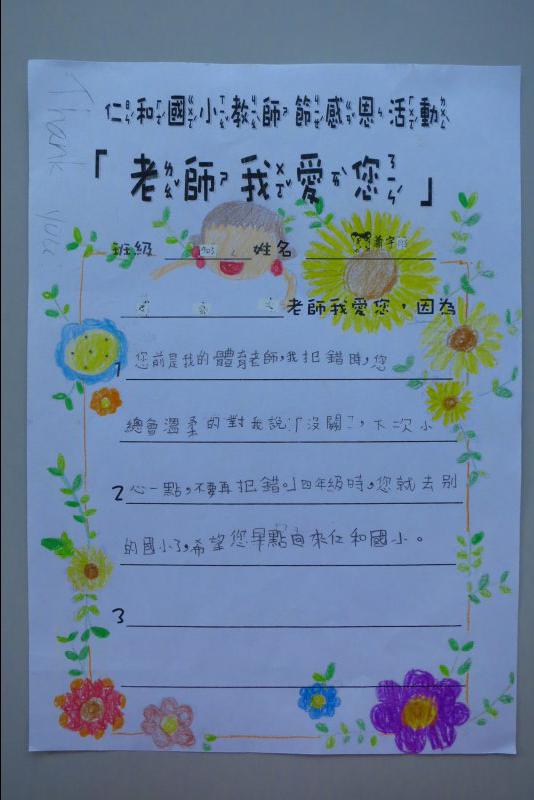 Thank you
仁和國小教師節感恩活動
「老師我愛您」
班級 403 姓名
老師我愛您，因為
1 您前是我的體育老師,我犯錯時,您
總會溫柔的對我說:「沒關」,下次小
2 心一點,不要再犯錯。」四年級時,您就去別
的國小了,希望您早點回來仁和國小。
3